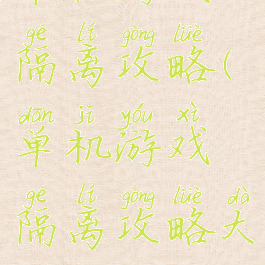 gé lí gōng lüè
隔离攻略(
dān jī yóu xì
单机游戏
gé lí gōng lüè dà
隔离攻略大